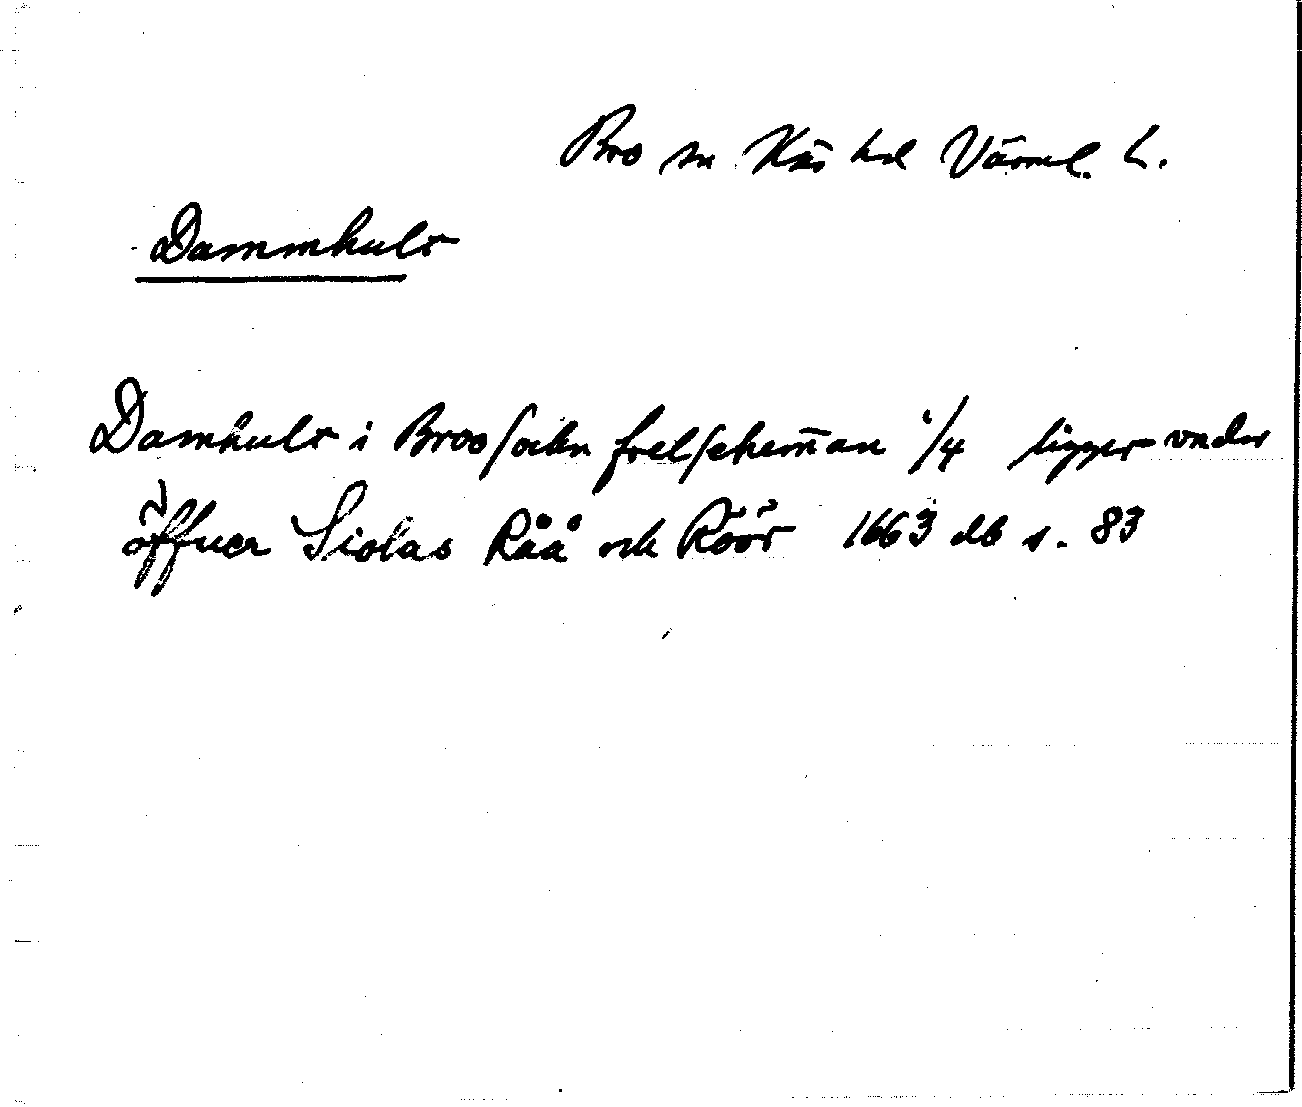 Bro sn Näs hd Värml. L.
Dammhult
Damhult i Broosockn frelsehem̄an 1/4 ligger vnder
öffuer Siolas Råå och Röör 1663 db s. 83